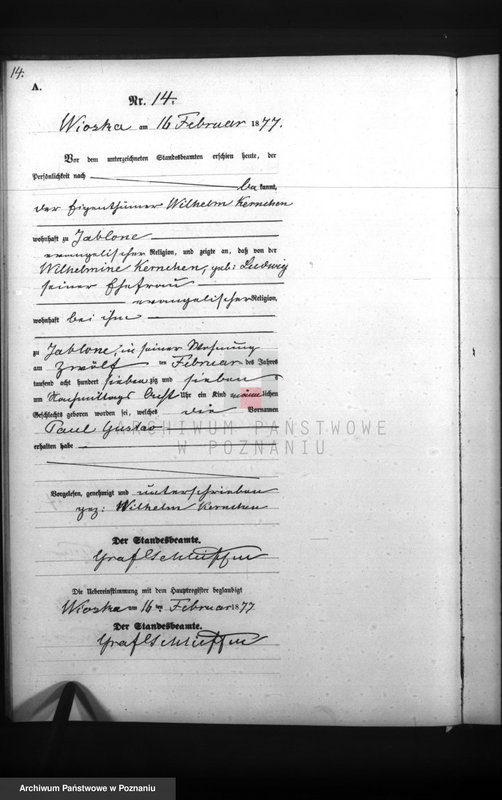 14.
A.
Nr. 14.
Wioska am 16 Februar 1877.
Vor dem unterzeichneten Standesbeamten erschien heute, der
Persönlichkeit nach
be kannt,
der Eigenthümer Wilhelm Kernchen
wohnhaft zu Jablone
evangelischer Religion, und zeigte an, daß von der
Wilhelmine Kernchen, geb: Ludwig
seiner Ehefrau
evangelischer Religion,
wohnhaft bei ihm
zu Jablone, in seiner Wohnung
am Zwölf ten Februar des Jahres
tausend acht hundert sieben zig und sieben
um Nachmittags Acht Uhr ein Kind männ lichen
Geschlechts geboren worden sei, welches die Vornamen
Paul Gustav
erhalten habe
ARCHIWUM PAŃSTWOWE
W POZNANIU
Vorgelesen, genehmigt und unterschrieben
gez: Wilhelm Kernchen
Der Standesbeamte.
Graf Schlieffen
Die Uebereinstimmung mit dem Hauptregister beglaubigt
Wioska am 16ten Februar 1877
Der Standesbeamte.
Graf Schlieffen
Archiwum Państwowe w Poznaniu